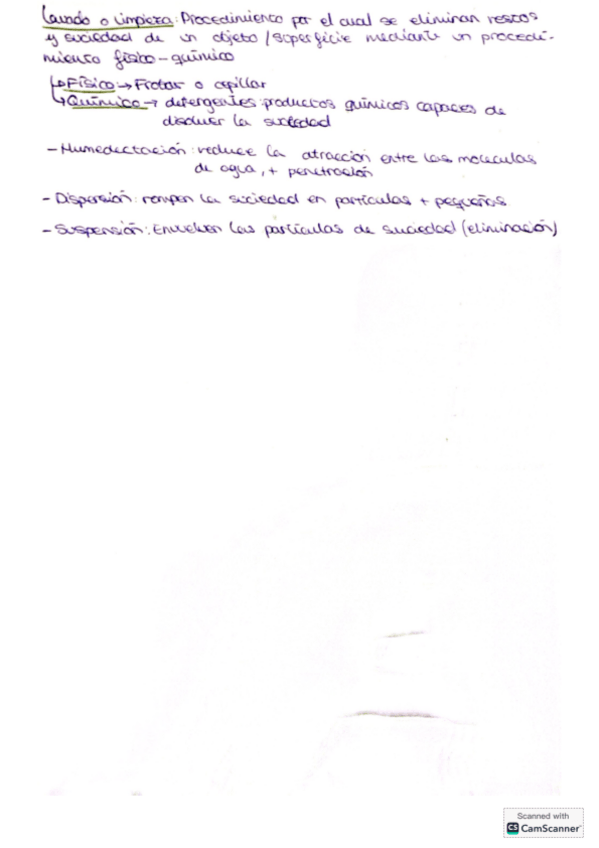 Lavado o limpieza: Procedimiento por el cual se eliminan restos
y suciedad de un objeto / superficie mediante un procedi-
miento físico-químico
↳ Físico → Frotar o cepillar
↳ Químico → detergentes: productos químicos capaces de
disolver la suciedad
- Humedectación: reduce la atracción entre las moleculas
de agua, + penetración
- Dispersión: rompen la suciedad en partículas + pequeñas
- Suspensión: Envuelven las partículas de suciedad (eliminación)
Scanned with
CS CamScanner